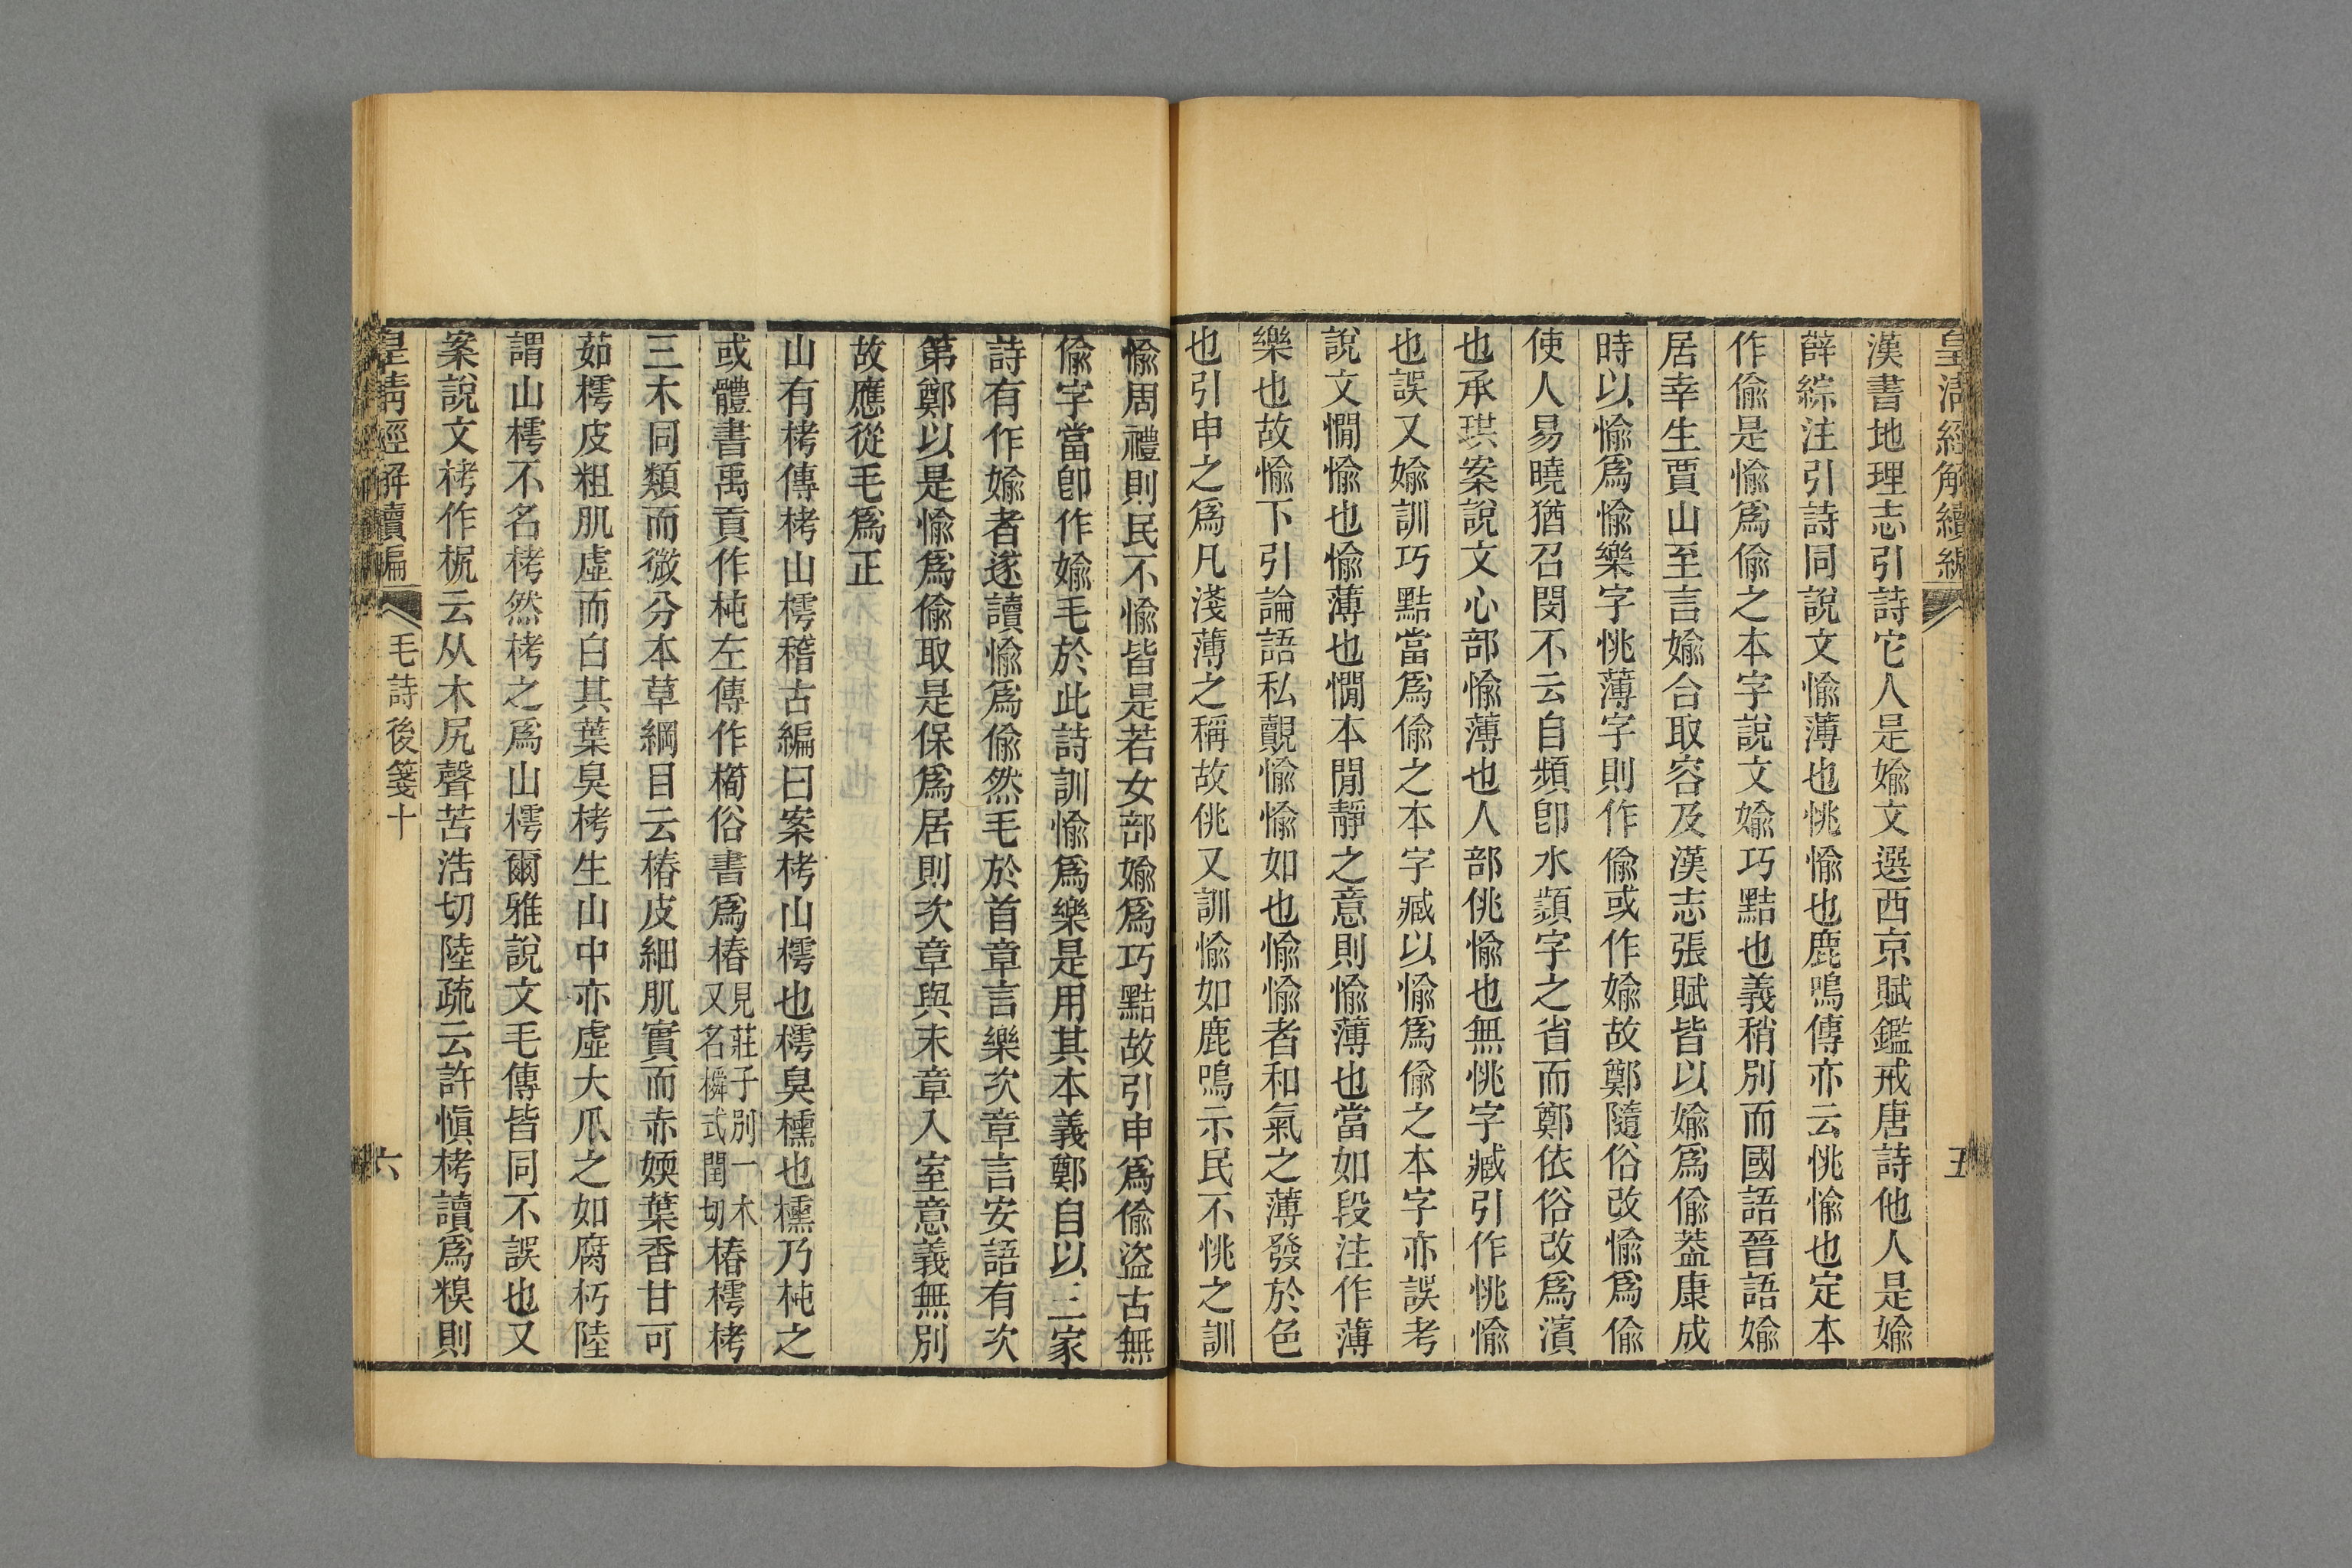 皇清經解續編
五
漢書地理志引詩它人是媮文選西京賦鑑戒唐詩他人是媮
薛綜注引詩同說文愉薄也恌愉也鹿鳴傳亦云恌愉也定本
作偷是愉爲偷之本字說文媮巧黠也義稍別而國語晉語媮
居幸生賈山至言媮合取容及漢志張賦皆以媮爲偷葢康成
時以愉爲愉樂字恌薄字則作偷或作媮故鄭隨俗改愉爲偷
使人易曉猶召閔不云自頻卽水瀕字之省而鄭依俗改爲濱
也承珙案說文心部愉薄也人部佻愉也無恌字臧引作恌愉
也誤又媮訓巧黠當爲偷之本字臧以愉爲偷之本字亦誤考
說文憪愉也愉薄也憪本閒靜之意則愉薄也當如段注作薄
樂也故愉下引論語私覿愉愉如也愉愉者和氣之薄發於色
也引申之爲凡淺薄之稱故佻又訓愉如鹿鳴示民不恌之訓
愉周禮則民不愉皆是若女部媮爲巧黠故引申爲偷盜古無
偷字當卽作媮毛於此詩訓愉爲樂是用其本義鄭自以三家
詩有作媮者遂讀愉爲偷然毛於首章言樂次章言安語有次
第鄭以是愉爲偷取是保爲居則次章與末章入室意義無別
故應從毛爲正
山有栲傳栲山樗稽古編曰案栲山樗也樗臭櫄也櫄乃杶之
或體書禹貢作杶左傳作橁俗書爲椿見莊子別一木又名橓式閏切椿樗栲
三木同類而微分本草綱目云椿皮細肌實而赤媆葉香甘可
茹樗皮粗肌虛而白其葉臭栲生山中亦虛大爪之如腐朽陸
謂山樗不名栲然栲之爲山樗爾雅說文毛傳皆同不誤也又
案說文栲作㧡云从木尻聲苦浩切陸疏云許愼栲讀爲糗則
皇清經解續編
毛詩後箋十
六